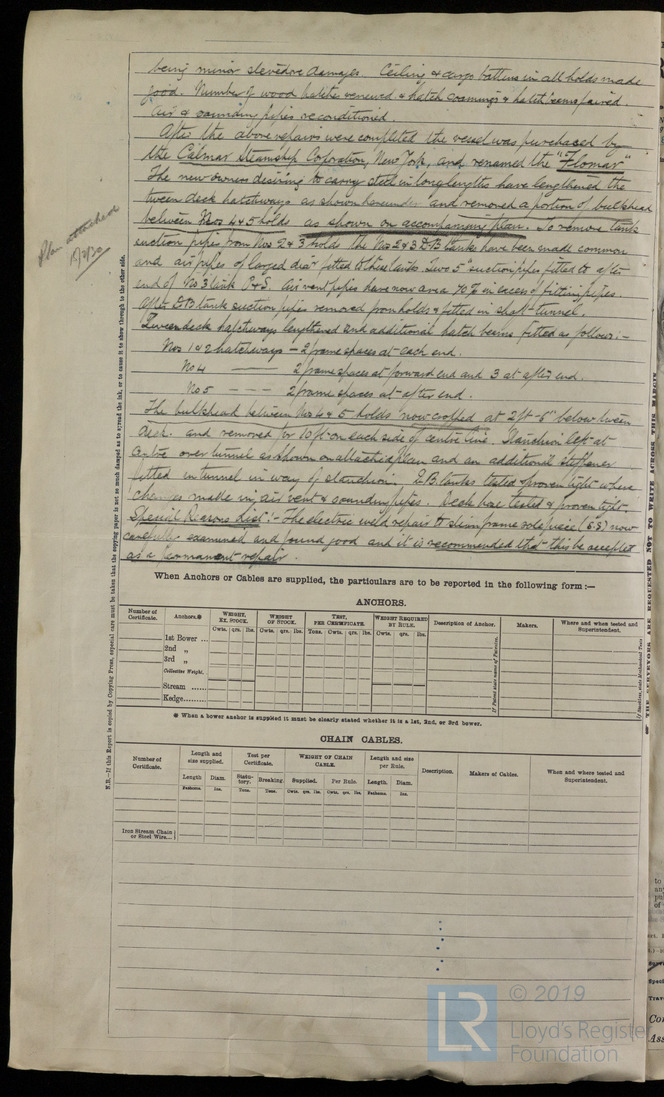 being minor stevedore damages. Ceiling & cargo battens in all holds made
good. Number of wood hatches renewed & hatch coamings & hatch repaired.
Air & sounding pipes reconditioned.
After the above repairs were completed the vessel was purchased by
the Calmar Steamship Corporation, New York, and renamed the "Flomar"
The new owners desiring to carry steel in long lengths have lengthened the
tween deck hatchways as shown hereunder and removed a portion of bulkhead
between Nos 4 & 5 holds as shown on accompanying plan. To remove tank
suction pipes from Nos 2 & 3 holds the Nos 2 & 3 D.B tanks have been made common
and air pipes of larged diar fitted to these tanks. Two 5" suction pipes fitted to after
end of No 3 tank P & S. Air vent pipes have now area 70% in excess of filling pipes.
After D.B tank suction pipes removed from holds & fitted in shaft tunnel.
Tween deck hatchways lengthened and additional hatch beams fitted as follows:-
Nos 1 & 2 hatchways - 2 frame spaces at each end.
No 4 —— 2 frame spaces at forward end and 3 at after end.
No 5 - - - 2 frame spaces at after end.
The bulkhead between Nos 4 & 5 holds now cropped at 2ft-6" below tween
deck and removed for 10ft on each side of centre line. Stanchion left at
centre over tunnel as shown on attached plan and an additional stiffener
fitted in tunnel in way of stanchion. D.B. tanks tested & proven tight where
changes made in air vent & sounding pipes. Deck hose tested & proven tight.
Special Reasons List:- The electric weld repair to stern frame sole piece (S.S) now
carefully examined and found good and it is recommended that this be accepted
as a permanent repair.
Plan attached
N.B.—If this Report is copied by Copying Press, especial care must be taken that the copying paper is not so much damped as to spread the ink, or to cause it to show through to the other side.
When Anchors or Cables are supplied, the particulars are to be reported in the following form:—
ANCHORS.
Number of Certificate. Anchors.* WEIGHT, EX. STOCK. WEIGHT OF STOCK. TEST, PER CERTIFICATE. WEIGHT REQUIRED BY RULE. Description of Anchor. Makers. Where and when tested and Superintendent.
Cwts. qrs. lbs. Cwts. qrs. lbs. Tons. Cwts. qrs. lbs. Cwts. qrs. lbs.
1st Bower ...
2nd „
3rd „
Collective Weight.
Stream ......
Kedge.........
* When a bower anchor is supplied it must be clearly stated whether it is a 1st, 2nd, or 3rd bower.
CHAIN CABLES.
Number of Certificate. Length and size supplied. Test per Certificate. WEIGHT OF CHAIN CABLE. Length and size per Rule. Description. Makers of Cables. When and where tested and Superintendent.
Length Diam. Statutory. Breaking. Supplied. Per Rule. Length. Diam.
Fathoms. Ins. Tons. Tons. Cwts. qrs. lbs. Cwts. qrs. lbs. Fathoms. Ins.
Iron Stream Chain or Steel Wire...
THE SURVEYORS ARE REQUESTED NOT TO WRITE ACROSS THIS MARGIN
LR
© 2019
Lloyd's Register
Foundation